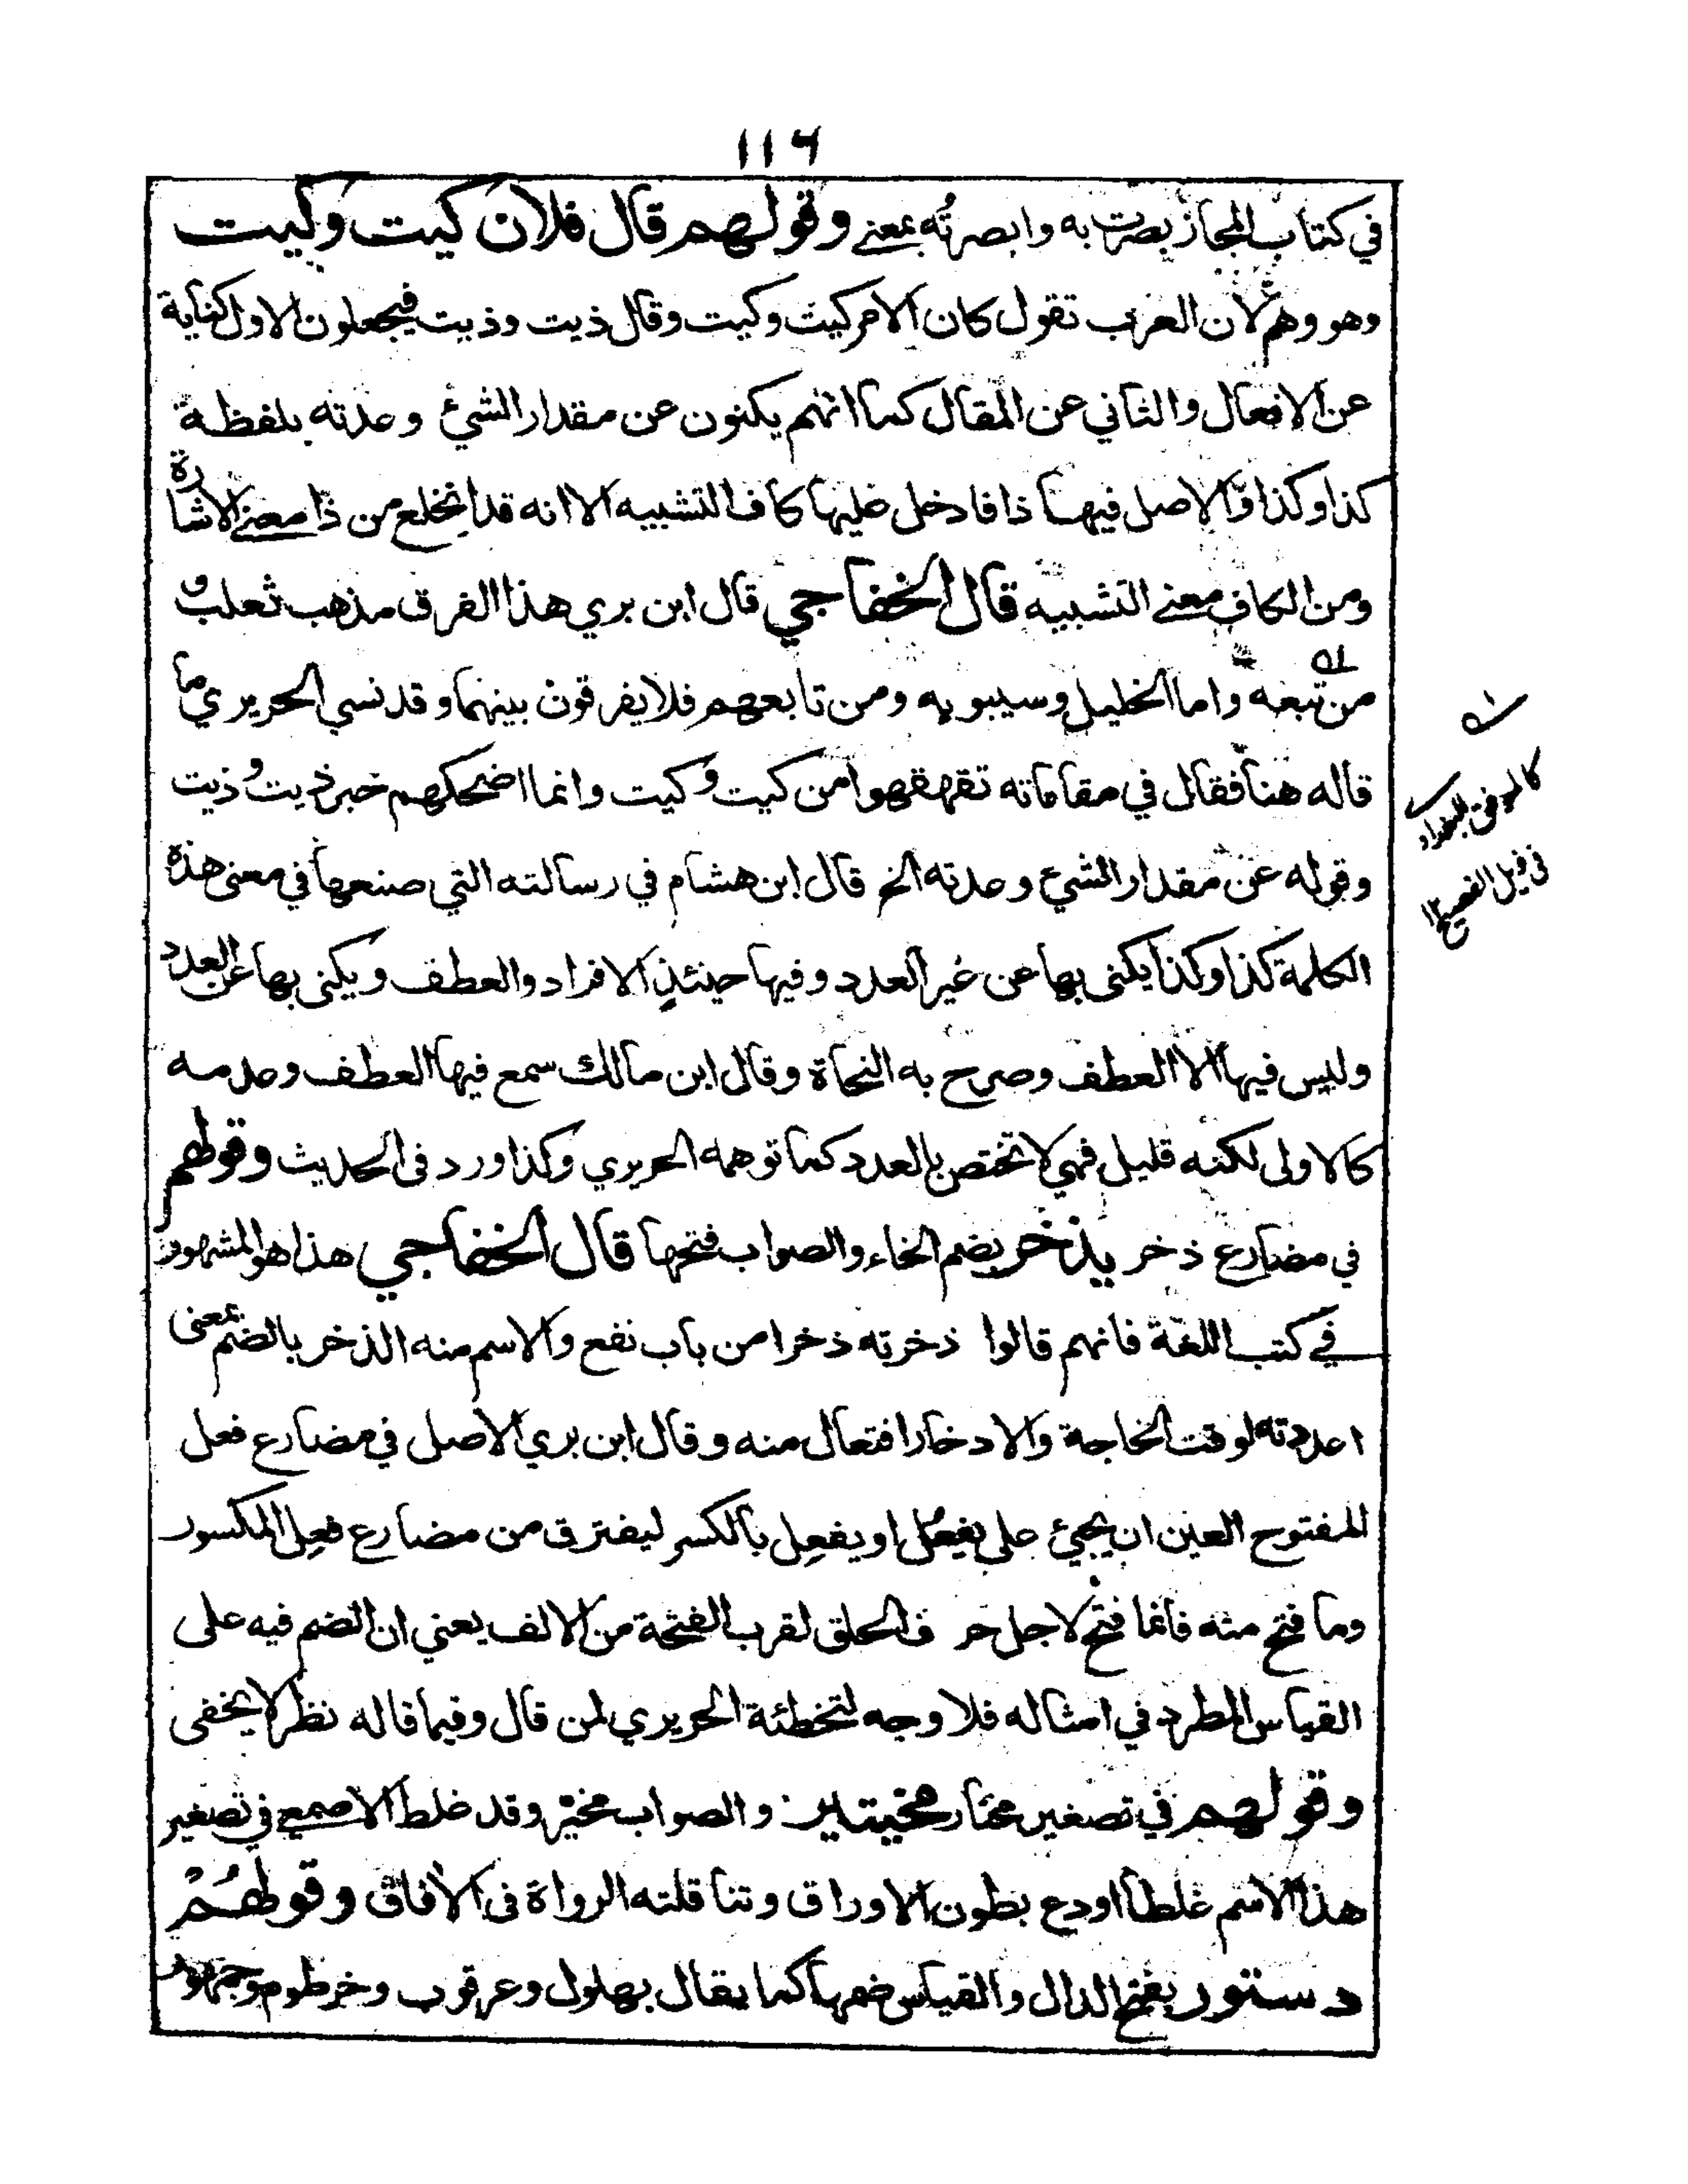 ١١٦
في كتاب المجاز بصرت به وابصرته بمعنے وقولهم قال فلان كيت وكيت
وهو وهم لان العرب تقول كان الامر كيت وكيت وقال ذيت وذيت فيجعلون الاول كناية
عن الافعال والثاني عن المقال كما انهم يكنون عن مقدار الشيئ وعدته بلفظة
كذا وكذا والاصل فيها ذا فادخل عليها كاف التشبيه الا انه قد انخلع من ذا معنے الاشارة
ومن الكاف معنے التشبيه قال الخفاجي قال ابن بري هذا الفرق مذهب ثعلب و
من تبعه واما الخليل وسيبويه ومن تابعهم فلا يفرقون بينهما وقد نسي الحريري ما
قاله هنا فقال في مقاماته تقهقهوا من كيت وكيت وانما اضحكهم خبر ذيت وذيت
وقوله عن مقدار الشيئ وعدته الخ قال ابن هشام في رسالته التي صنعها في معنى هذه
الكلمة كذا وكذا يكنى بها عن غير العدد وفيها حينئذٍ الافراد والعطف ويكنى بها عن العدد
وليس فيها الا العطف وصرح به النحاة وقال ابن مالك سمع فيها العطف وعدمه
كالاولى لكنه قليل فهي لا تختص بالعدد كما توهمه الحريري وكذا ورد فى الحديث وقولهم
في مضارع ذخر يذخر بضم الخاء والصواب فتحها قال الخفاجي هذا هو المشهور
في كتب اللغة فانهم قالوا ذخرته ذخرا من باب نفع والاسم منه الذخر بالضم بمعنى
اعددته لوقت الحاجة والادخار افتعال منه وقال ابن بري الاصل في مضارع فعل
المفتوح العين ان يجيئ على يفعُل او يفعِل بالكسر ليفترق من مضارع فعِل المكسور
وما فتح منه فانما فتح لاجل حرف الحلق لقرب الفتحة من الالف يعني ان الضم فيه على
القياس المطرد في امثاله فلا وجه لتخطئة الحريري لمن قال وفيما قاله نظر لا يخفى
وقولهم في تصغير مختار مخيتاير والصواب مخيّر وقد غلط الاصمعے في تصغير
هذا الاسم غلطاً اودع بطون الاوراق وتناقلته الرواة فى الآفاق وقولهُمْ
دستور بفتح الدال والقياس ضمها كما يقال بهلول وعرقوب وخرطوم وجمهور
كالموفق البغدادي
في ذيل الفصيح ١٢